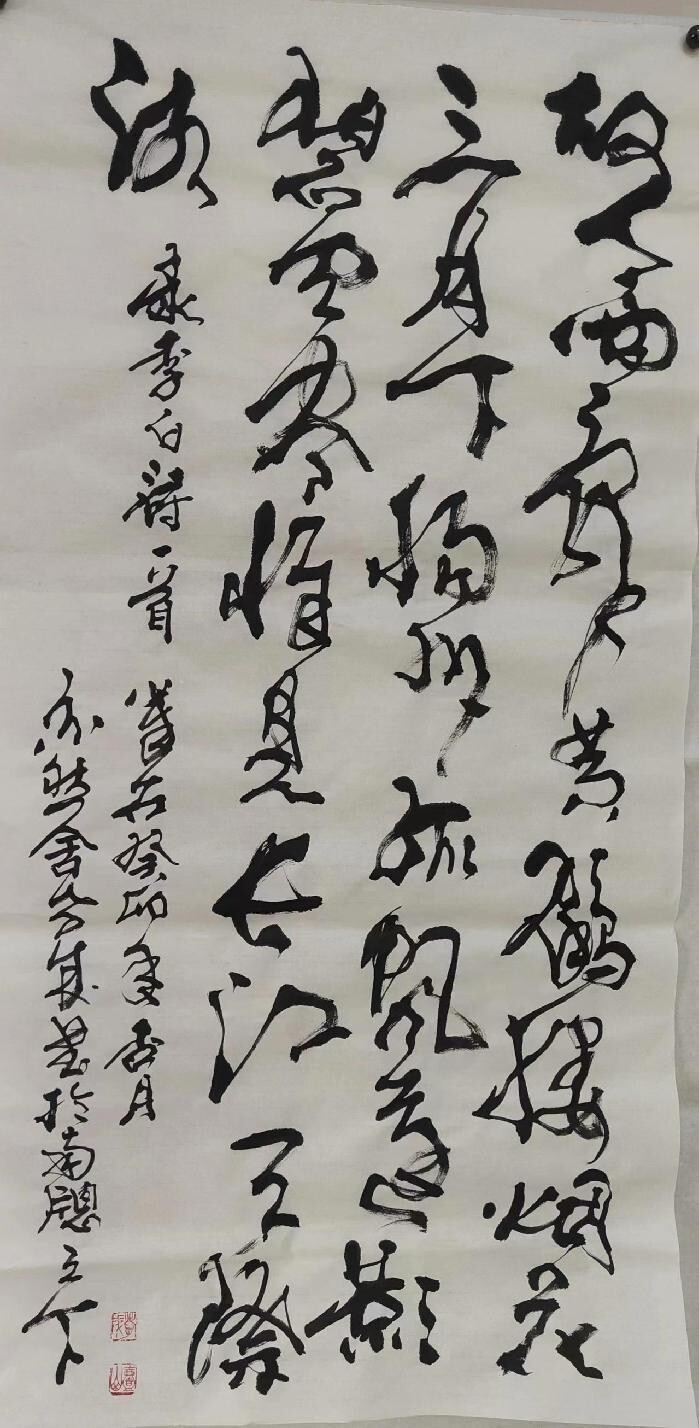 故人西辭黄鶴樓烟花
三月下揚州孤帆遠影
碧空盡惟見長江天際
流
錄李白詩一首
歲在癸卯年杏月
亦然舍書於南牕之下